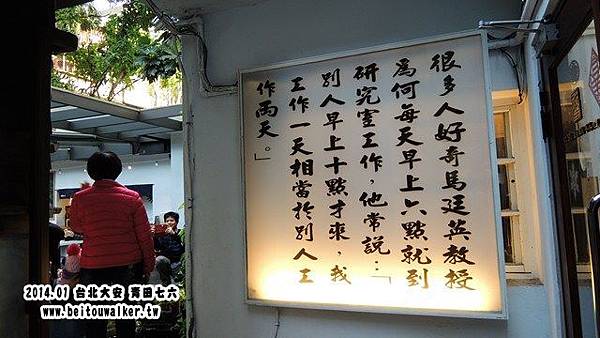 很多人好奇馬廷英教授
為何每天早上六點就到
研究室工作，他常說：「
別人早上十點才來，我
工作一天相當於別人工
作兩天。」
2014.01 台北大安 青田七六
www.beitouwalker.tw